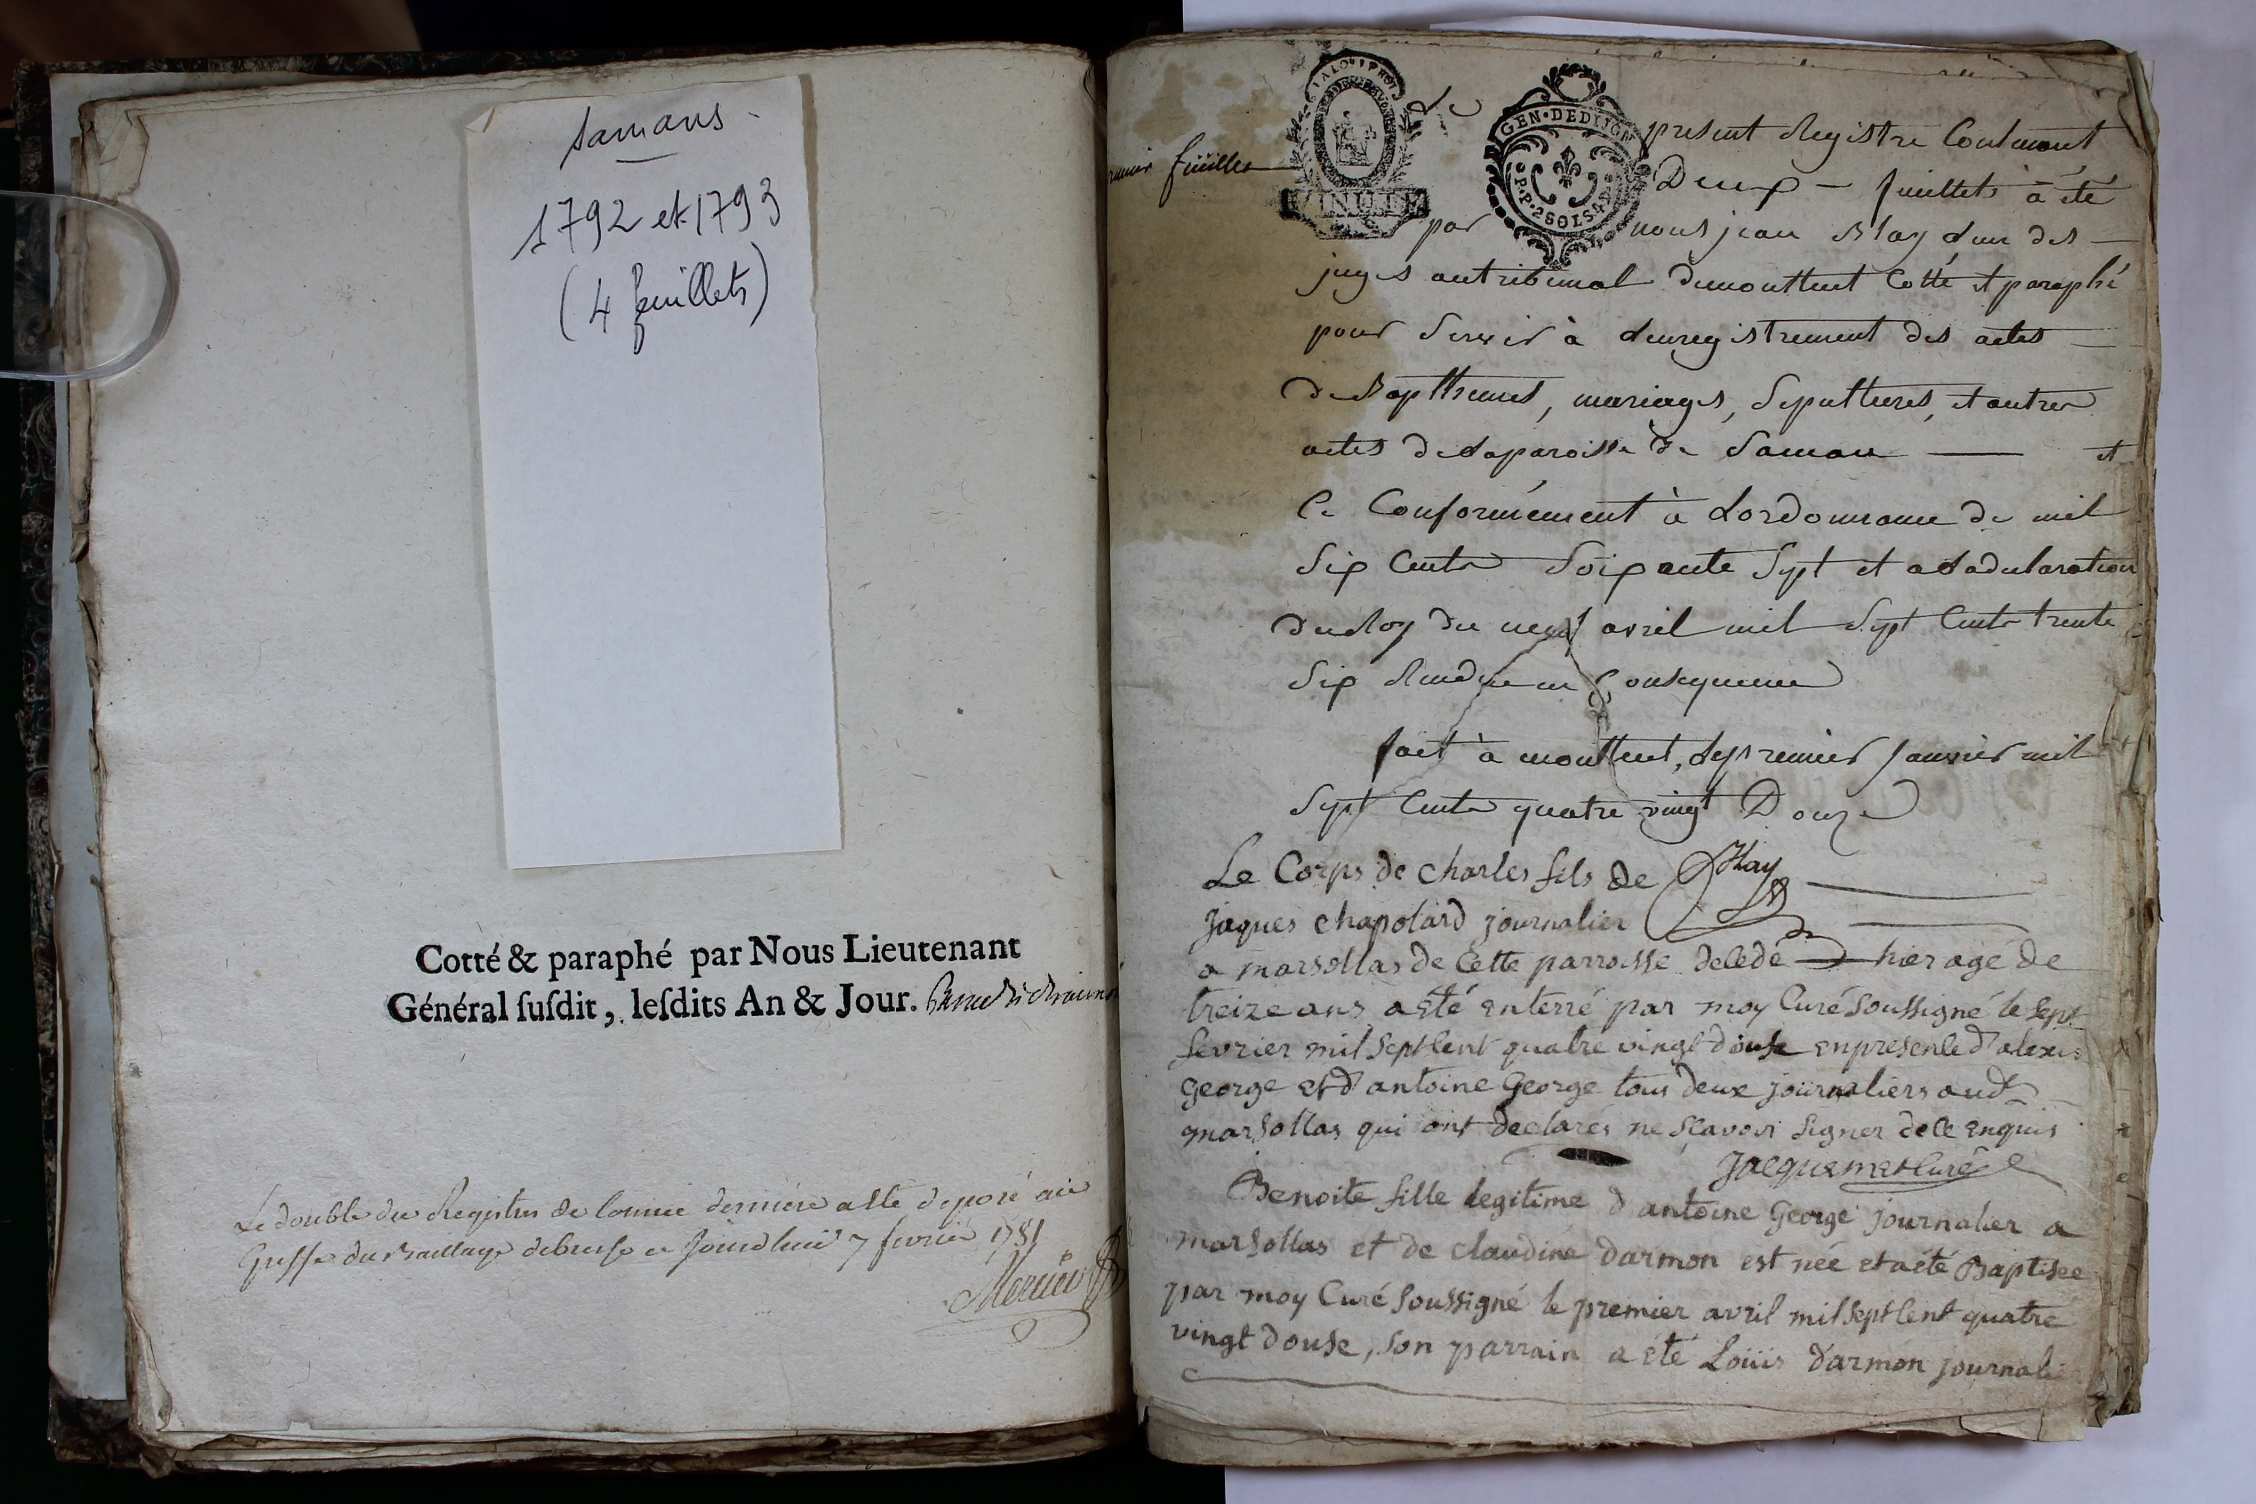 Samans
1792 et 1793
(4 feuillets)
Cotté & paraphé par Nous Lieutenant
Général ſuſdit, leſdits An & Jour.
Le double du Registre de lannée derniere a été deposé au
Greffe du Bailliage debresse ce Jourdhui 7 fevrier 1781
Mercier
premier feuillet
MINUTE
GEN·DEDIJON
Le present Registre Contenant
Deux - feuillets à été
par nous jean Blay dun des
juges autribunal demontluel Cotté et paraphé
pour servir à denregistrement des actes
de Bapthemes, mariages, sepultures, et autres
actes de Laparoisse de Saman et
Ce Conformément à Lordonnance de mil
Six Cents Soixante Sept et a Ladeclaration
du Roy du neuf avril mil Sept Cents trente
Six Rendue en Consequence
fait à montluel, Le premier Janvier mil
Sept Cents quatre vingt Douze
Blay
Le Corps de charles fils de
Jaques chapolard journalier
a marsollas de Cette parroisse decedé hier agé de
treize ans a eté enterré par moy Curé soussigné le sept
fevrier mil sept Cent quatre vingt douse en presence d'alexis
george et d'antoine George tous deux journaliers aud
marsollas qui ont declarés ne sçavoir signer de ce enquis
Jacquemet Curé
Benoite fille legitime d'antoine George journalier a
marsollas et de claudine darmon est née et a été Baptisée
par moy Curé soussigné le premier avril mil sept Cent quatre
vingt douse, son parrain a été Loüis d'armon journalier